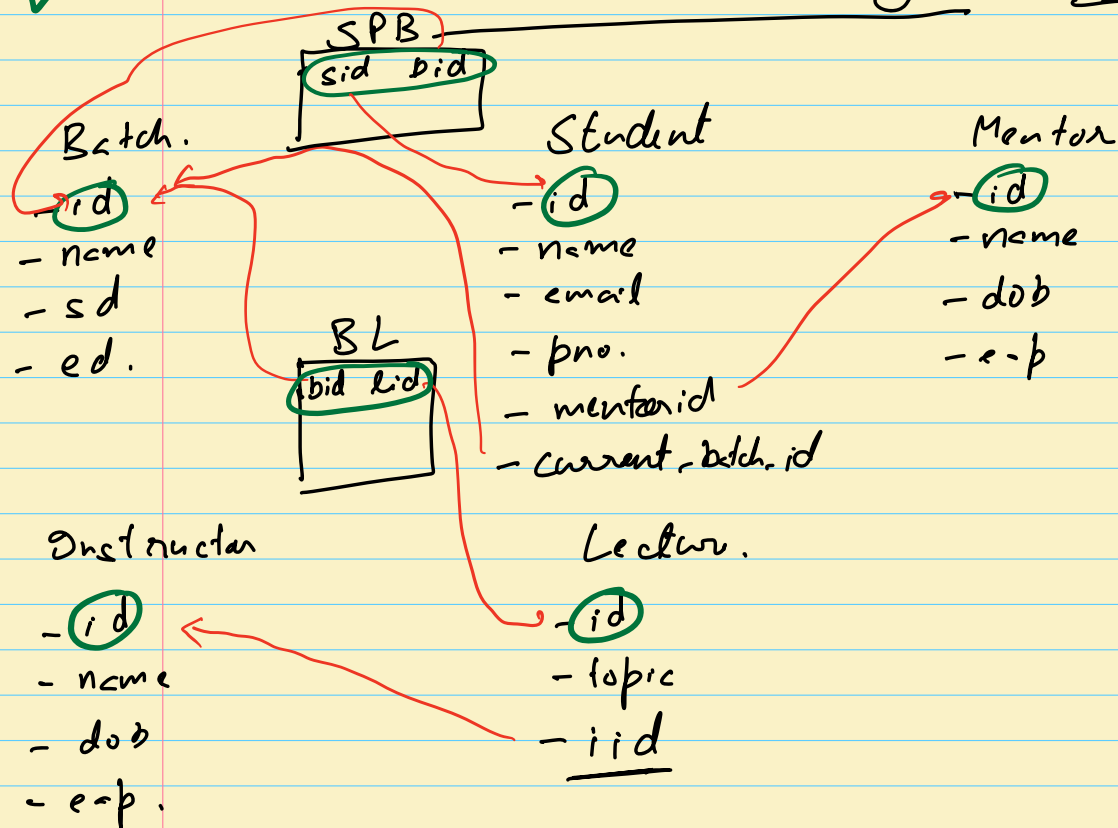 SPB
sid bid
Batch.
- id
- name
- sd
- ed.
Student
- id
- name
- email
- pno.
- mentorid
- current_batch_id
Mentor
- id
- name
- dob
- e-p
BL
bid lid
Instructor
- id
- name
- dob
- e-p.
Lectur.
- id
- topic
- iid